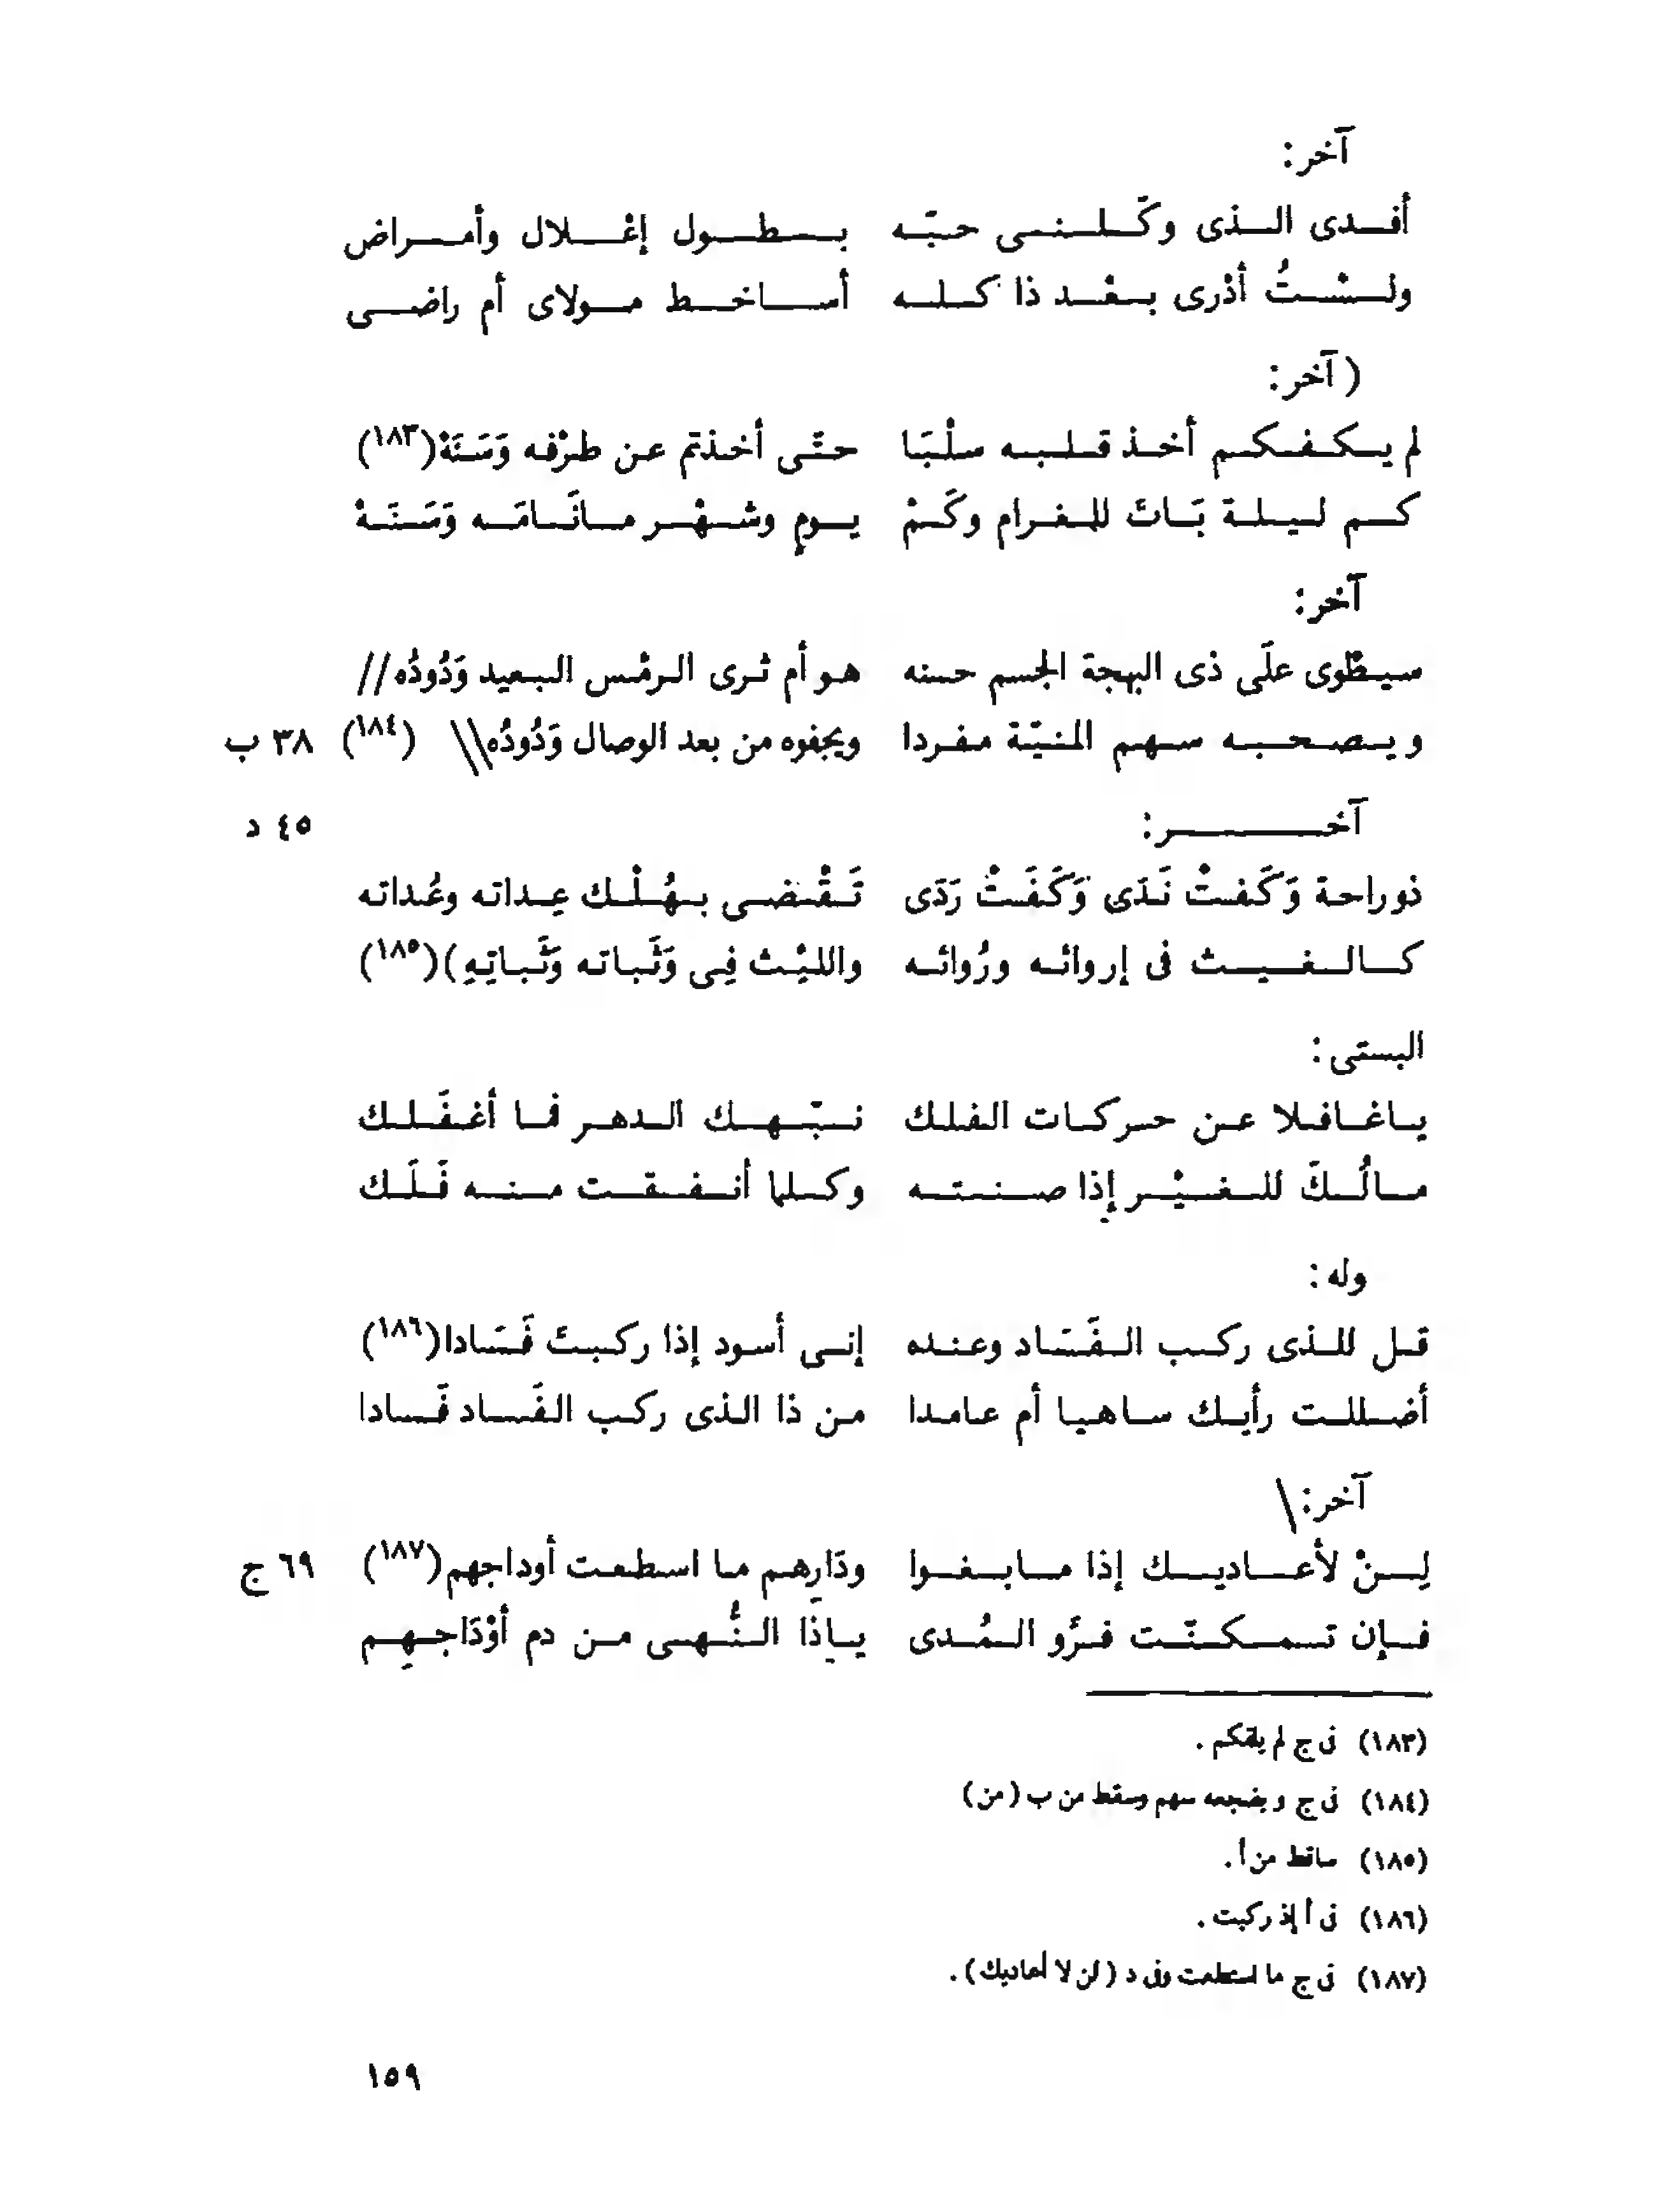 آخر:
أفدى الذى وكّلنى حبّه بطول إعْلال وأمراض
ولسْتُ أدْرى بعْد ذا كله أساخط مولاى أم راضى
(آخر:
لم يكفكم أخذ قلبه سلْبَا حتّى أخذتم عن طرْفه وَسَنَهْ(١٨٣)
كم ليلة بَاتَ للغرام وكَمْ يومٍ وشهْر مانَامَه وَسَنَهْ
آخر:
سيطْوى علَى ذى البهجة الجسم حسنه هو أم ثرى الرمْس البعيد وَدُودُه//
ويصحبه سهم المنيّة مفردا ويجفوه من بعد الوصال وَدُودُه\\ (١٨٤) ٣٨ ب
آخر: ٤٥ د
ذوراحة وَكَفتْ نَدَى وَكَفَتْ رَدَى تَقْضى بهُلْك عِداته وعُداته
كالغيث فى إروائه ورُوائه والليْث فِى وَثَباته وَثَباتِهِ)(١٨٥)
البستى:
ياغافلا عن حركات الفلك نبّهك الدهر فما أغفَلك
مالُكَ للغيْر إذا صنته وكلما أنفقت منه فَلَك
وله:
قل للذى ركب الفَسَاد وعنده إنى أسود إذا ركبتَ فَسَادا(١٨٦)
أضللت رأيك ساهيا أم عامدا من ذا الذى ركب الفَساد فَسادا
آخر:\
لِنْ لأعاديك إذا مابغوا ودَارِهم ما اسطعت أوداجهم(١٨٧) ٦٩ ج
فإن تمكنّت فرَو المُدى ياذَا النُّهى من دم أوْدَاجهِم
(١٨٣) فى ج لم يلقكم.
(١٨٤) فى ج ويضجعه سهم وسقط من ب (من)
(١٨٥) ساقط من أ.
(١٨٦) فى أ إذ ركبت.
(١٨٧) فى ج ما استطعت وفى د (لن لا أعاديك).
١٥٩